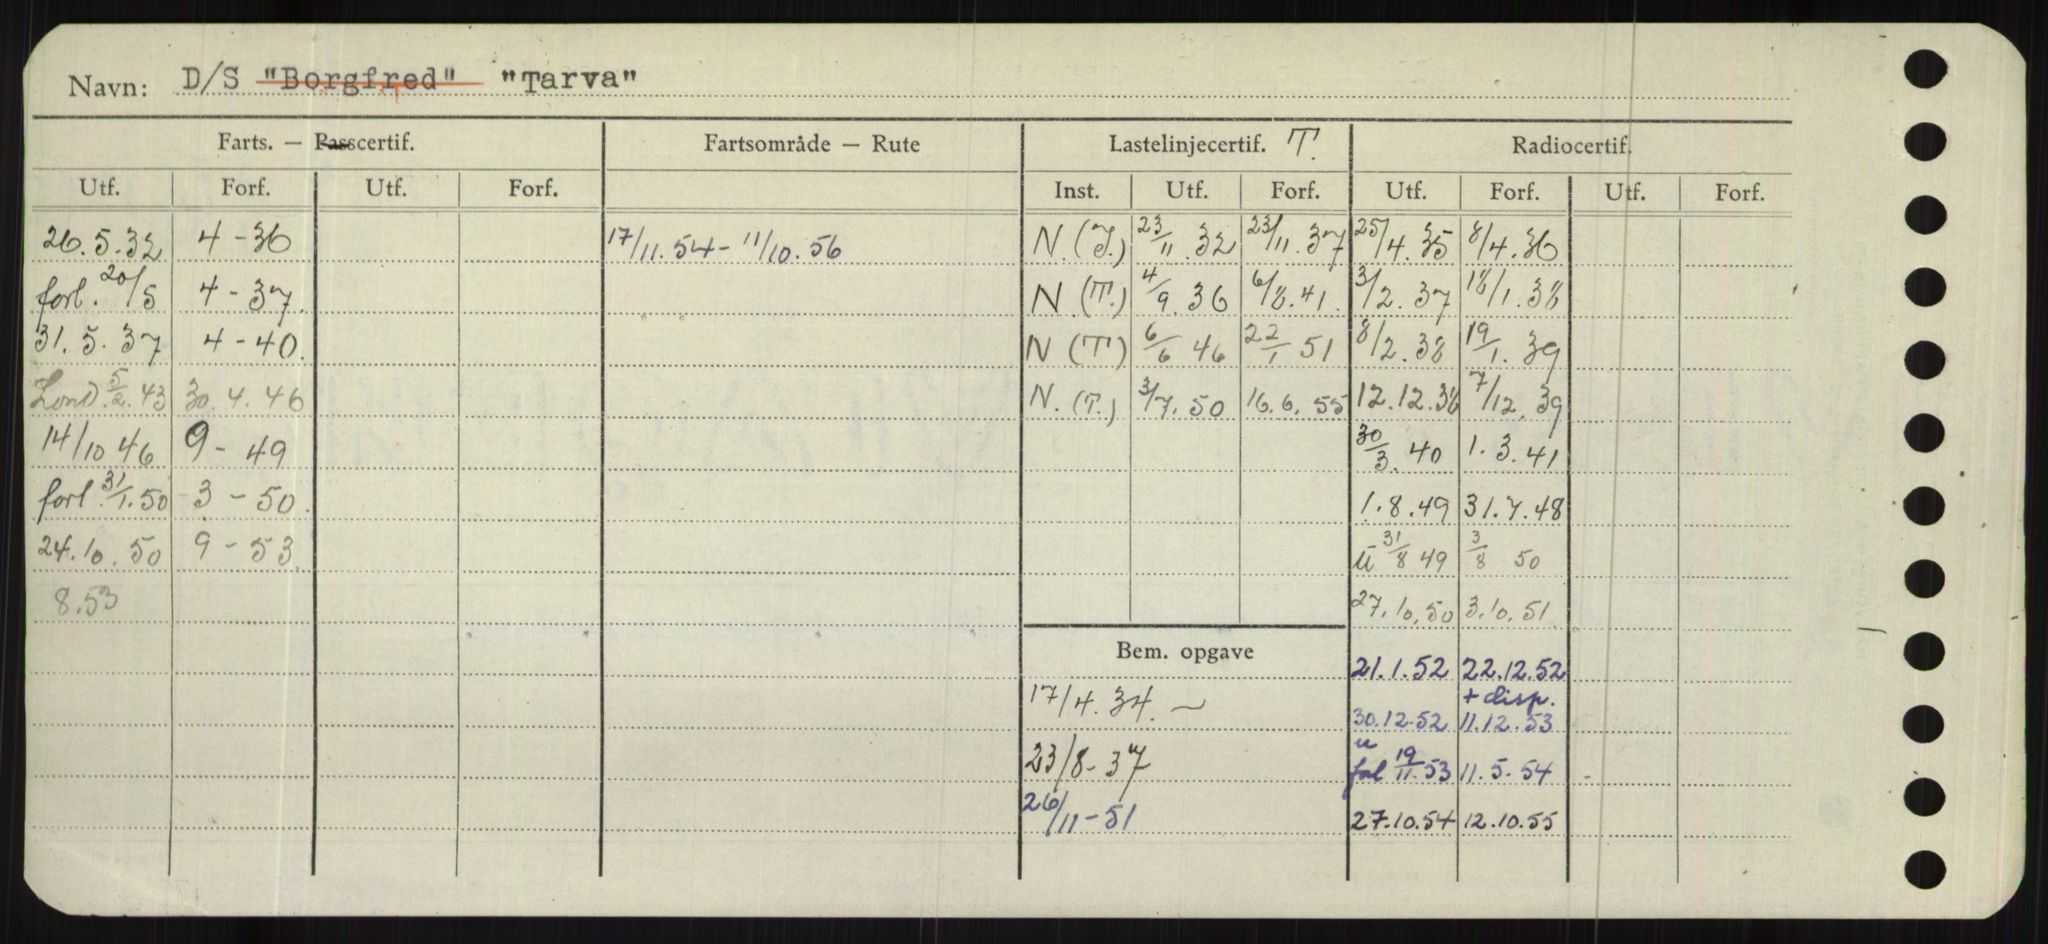 Navn: D/S "Borgfred" "Tarva"
Farts. — Passcertif. Fartsområde — Rute Lastelinjecertif. T. Radiocertif.
Utf. Forf. Utf. Forf. Inst. Utf. Forf. Utf. Forf. Utf. Forf.
26.5.32 4-36 17/11.54-11/10.56 N.(T.) 23/11.32 23/11.37 25/4.35 8/4.36
forl. 20/5 4-37. N(T.) 4/9.36 6/8.41. 3/2.37 18/1.38
31.5.37 4-40. N(T) 6/6 46 22/1 51 8/2.38 19/1.39
Lond. 5/2.43 30.4.46 N.(T.) 3/7.50 16.6.55 12.12.38 7/12.39
14/10 46 9-49 30/3.40 1.3.41
forl. 31/1.50 3-50. 1.8.49 31.7.48
24.10.50 9-53. 31/8 49 3/8 50
8.53 27.10.50 3.10.51.
Bem. opgave 21.1.52 22.12.52
17/4.34. + disp.
30.12.52 11.12.53
u
23/8-37 19/11.53 11.5.54
26/11-51 27.10.54 12.10.55